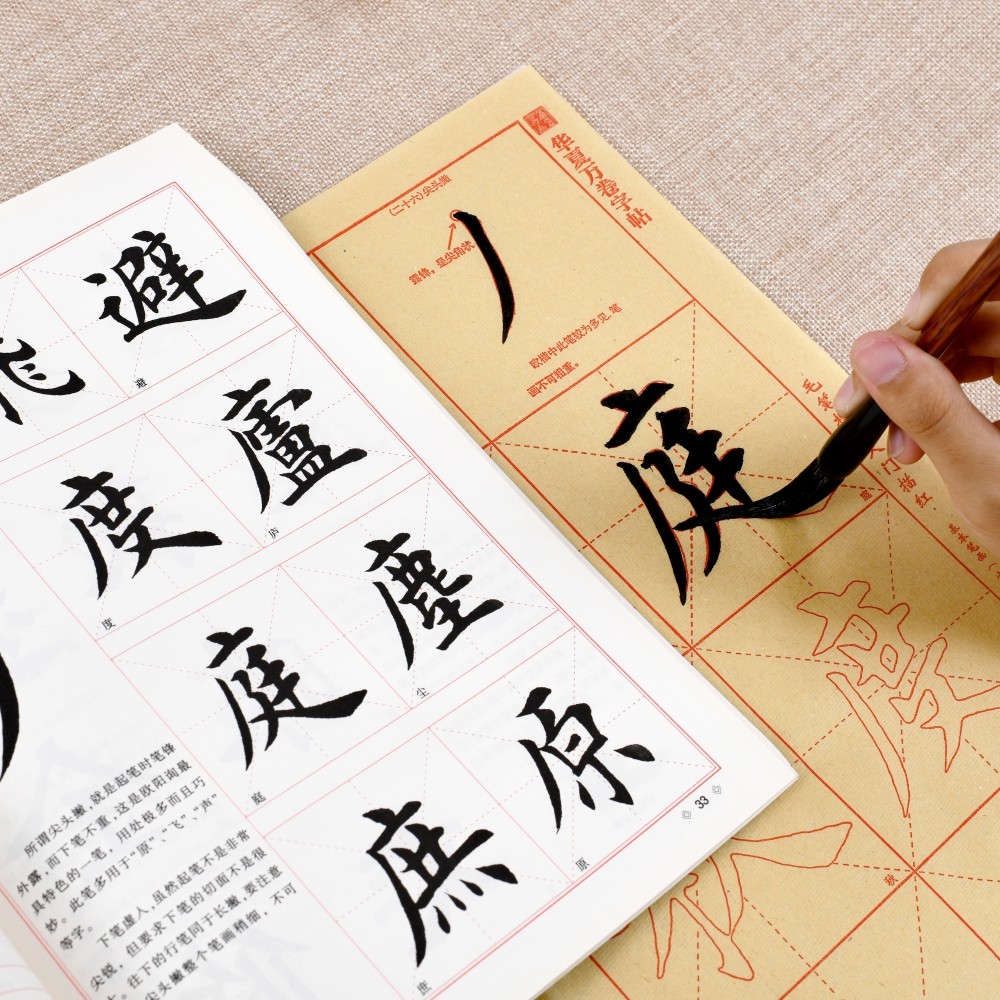 避
避
飞
廬
庐
度
度
塵
尘
庭
庭
原
原
庶
庶
所谓尖头撇,就是起笔时笔锋
外露,而下笔不重,这是欧阳询最
具特色的一笔,用处极多而且巧
妙。此笔多用于“原”、“飞”、“声”
等字。
下笔虚人,虽然起笔不是非常
尖锐,但要求下笔的切面不是很
往下的行笔同于长撇,要注意
尖头撇整个笔画稍细,不可
33
华夏万卷字帖
(二十六)尖头撇
露锋,呈尖角状
欧楷中此笔较为多见,笔
画不可粗重。
毛笔
门描红
基本笔画
庭
庭
秋